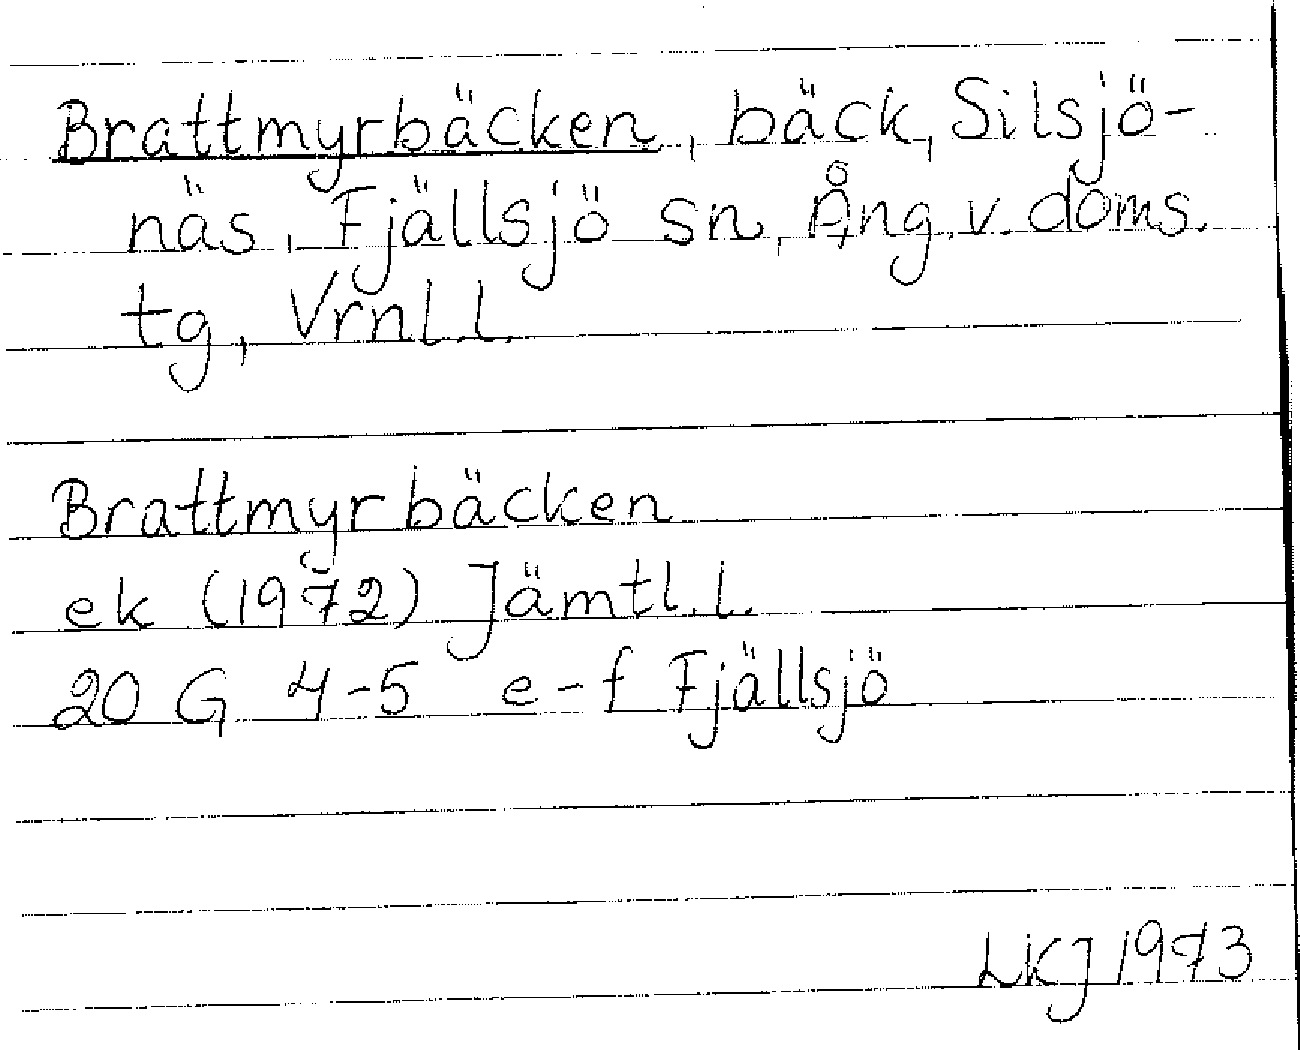 Brattmyrbäcken, bäck, Silsjö-
näs, Fjällsjö sn, Ång. v. doms.
tg, Vrnl.l.
Brattmyrbäcken
ek (1972) Jämtl.l.
20 G 4-5 e-f Fjällsjö
LKJ 1973